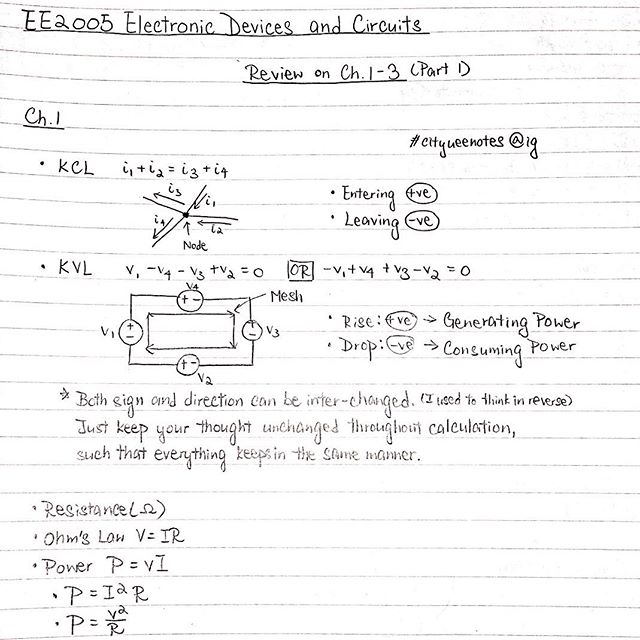 EE2005 Electronic Devices and Circuits
Review on Ch.1-3 (Part 1)
Ch.1
#cityueenotes@ig
• KCL i₁ + i₂ = i₃ + i₄
i₃
i₁
i₄
i₂
Node
• Entering +ve
• Leaving -ve
• KVL V₁ - V₄ - V₃ + V₂ = 0 OR -V₁ + V₄ + V₃ - V₂ = 0
V₄
Mesh
+ -
V₁ + -
+ - V₃
- +
V₂
• Rise: +ve → Generating Power
• Drop: -ve → Consuming Power
* Both sign and direction can be inter-changed. (I used to think in reverse)
Just keep your thought unchanged throughout calculation,
such that everything keeps in the same manner.
• Resistance (Ω)
• Ohm's Law V = IR
• Power P = VI
• P = I²R
• P = V²/R